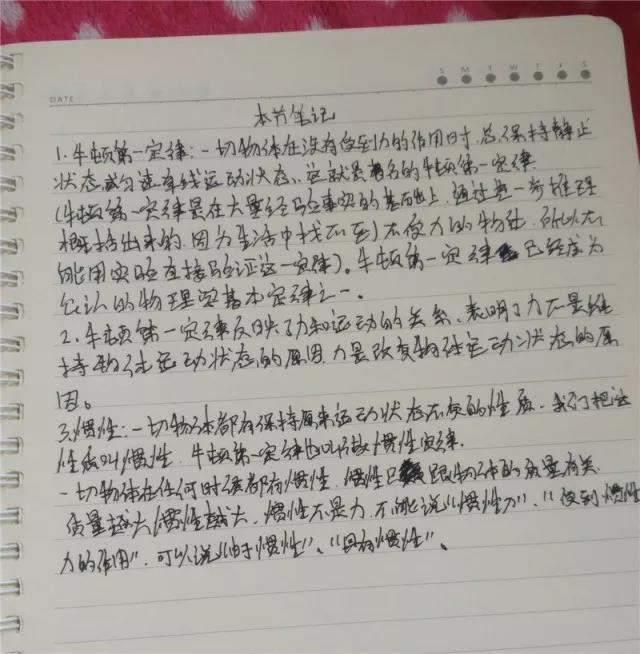 DATE
S M T W T F S
本节笔记
1. 牛顿第一定律：一切物体在没有受到力的作用时，总保持静止
状态或匀速直线运动状态、这就是著名的牛顿第一定律.
(牛顿第一定律是在大量经验事实的基础上，通过进一步推理
概括出来的，因为生活中找不到不受力的物体，所以不
能用实验直接验证这一定律)。牛顿第一定律已经成为
公认的物理学基本定律之一。
2. 牛顿第一定律反映了力和运动的关系、表明了力不是维
持物体运动状态的原因，力是改变物体运动状态的原
因。
3. 惯性：一切物体都有保持原来运动状态不变的性质，我们把这
性质叫惯性. 牛顿第一定律也叫做惯性定律.
一切物体在任何时候都有惯性，惯性只跟物体的质量有关
质量越大惯性越大，惯性不是力，不能说“惯性力”、“受到惯性
力的作用”，可以说“由于惯性”、“具有惯性”、